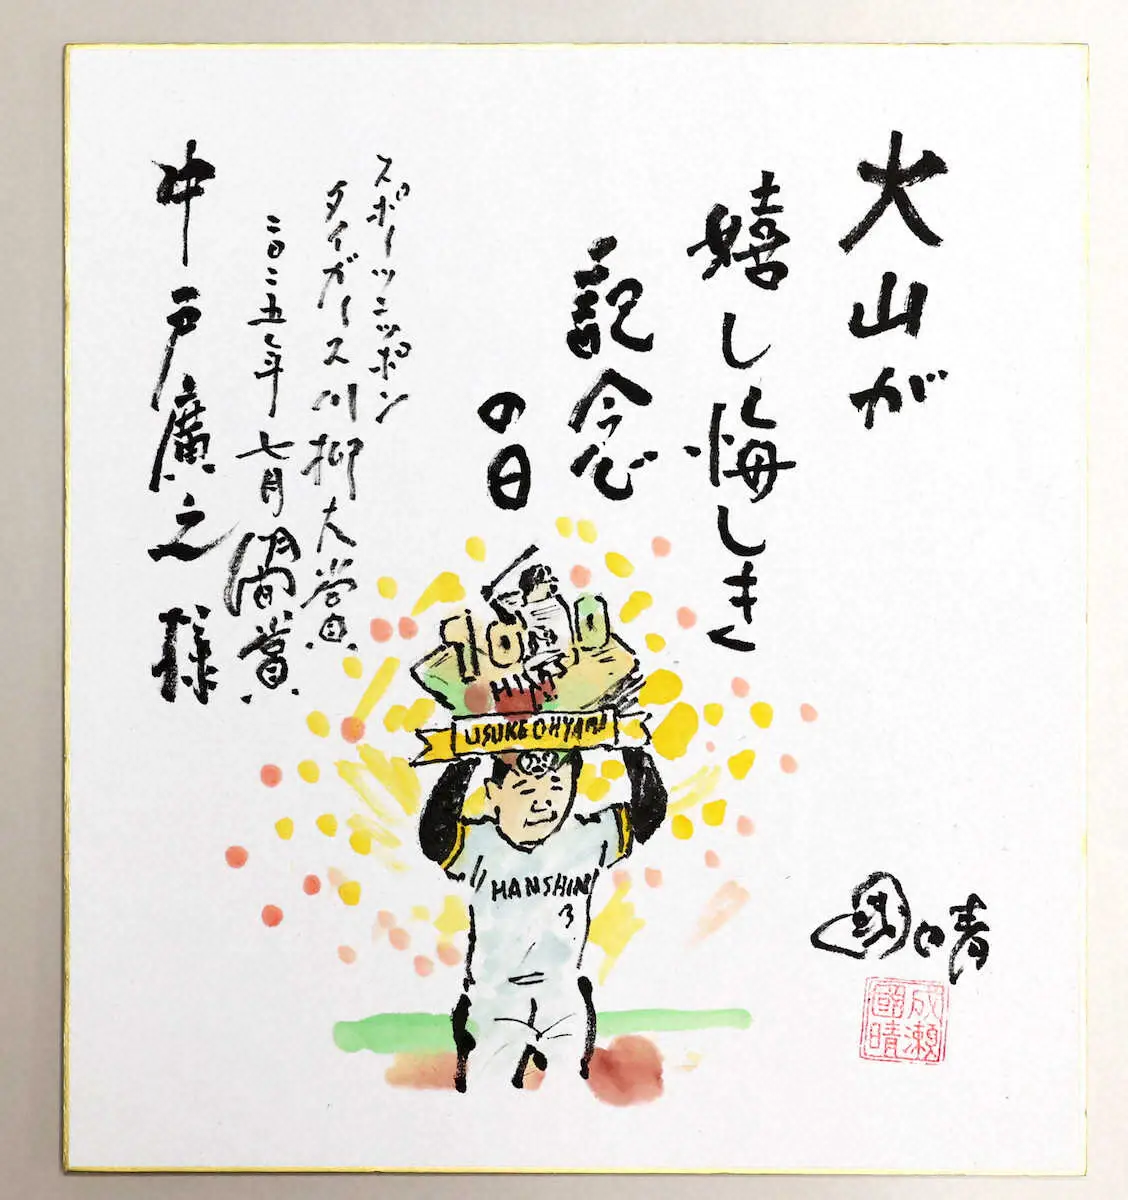 大山が
嬉し悔しき
記念
の日
スポーツニッポン
タイガース川柳大賞
二〇二五年七月間賞
中戸廣之様
1000
HITS
USUKE OHYAMA
HANSHIN
3
國晴
成瀬
國晴